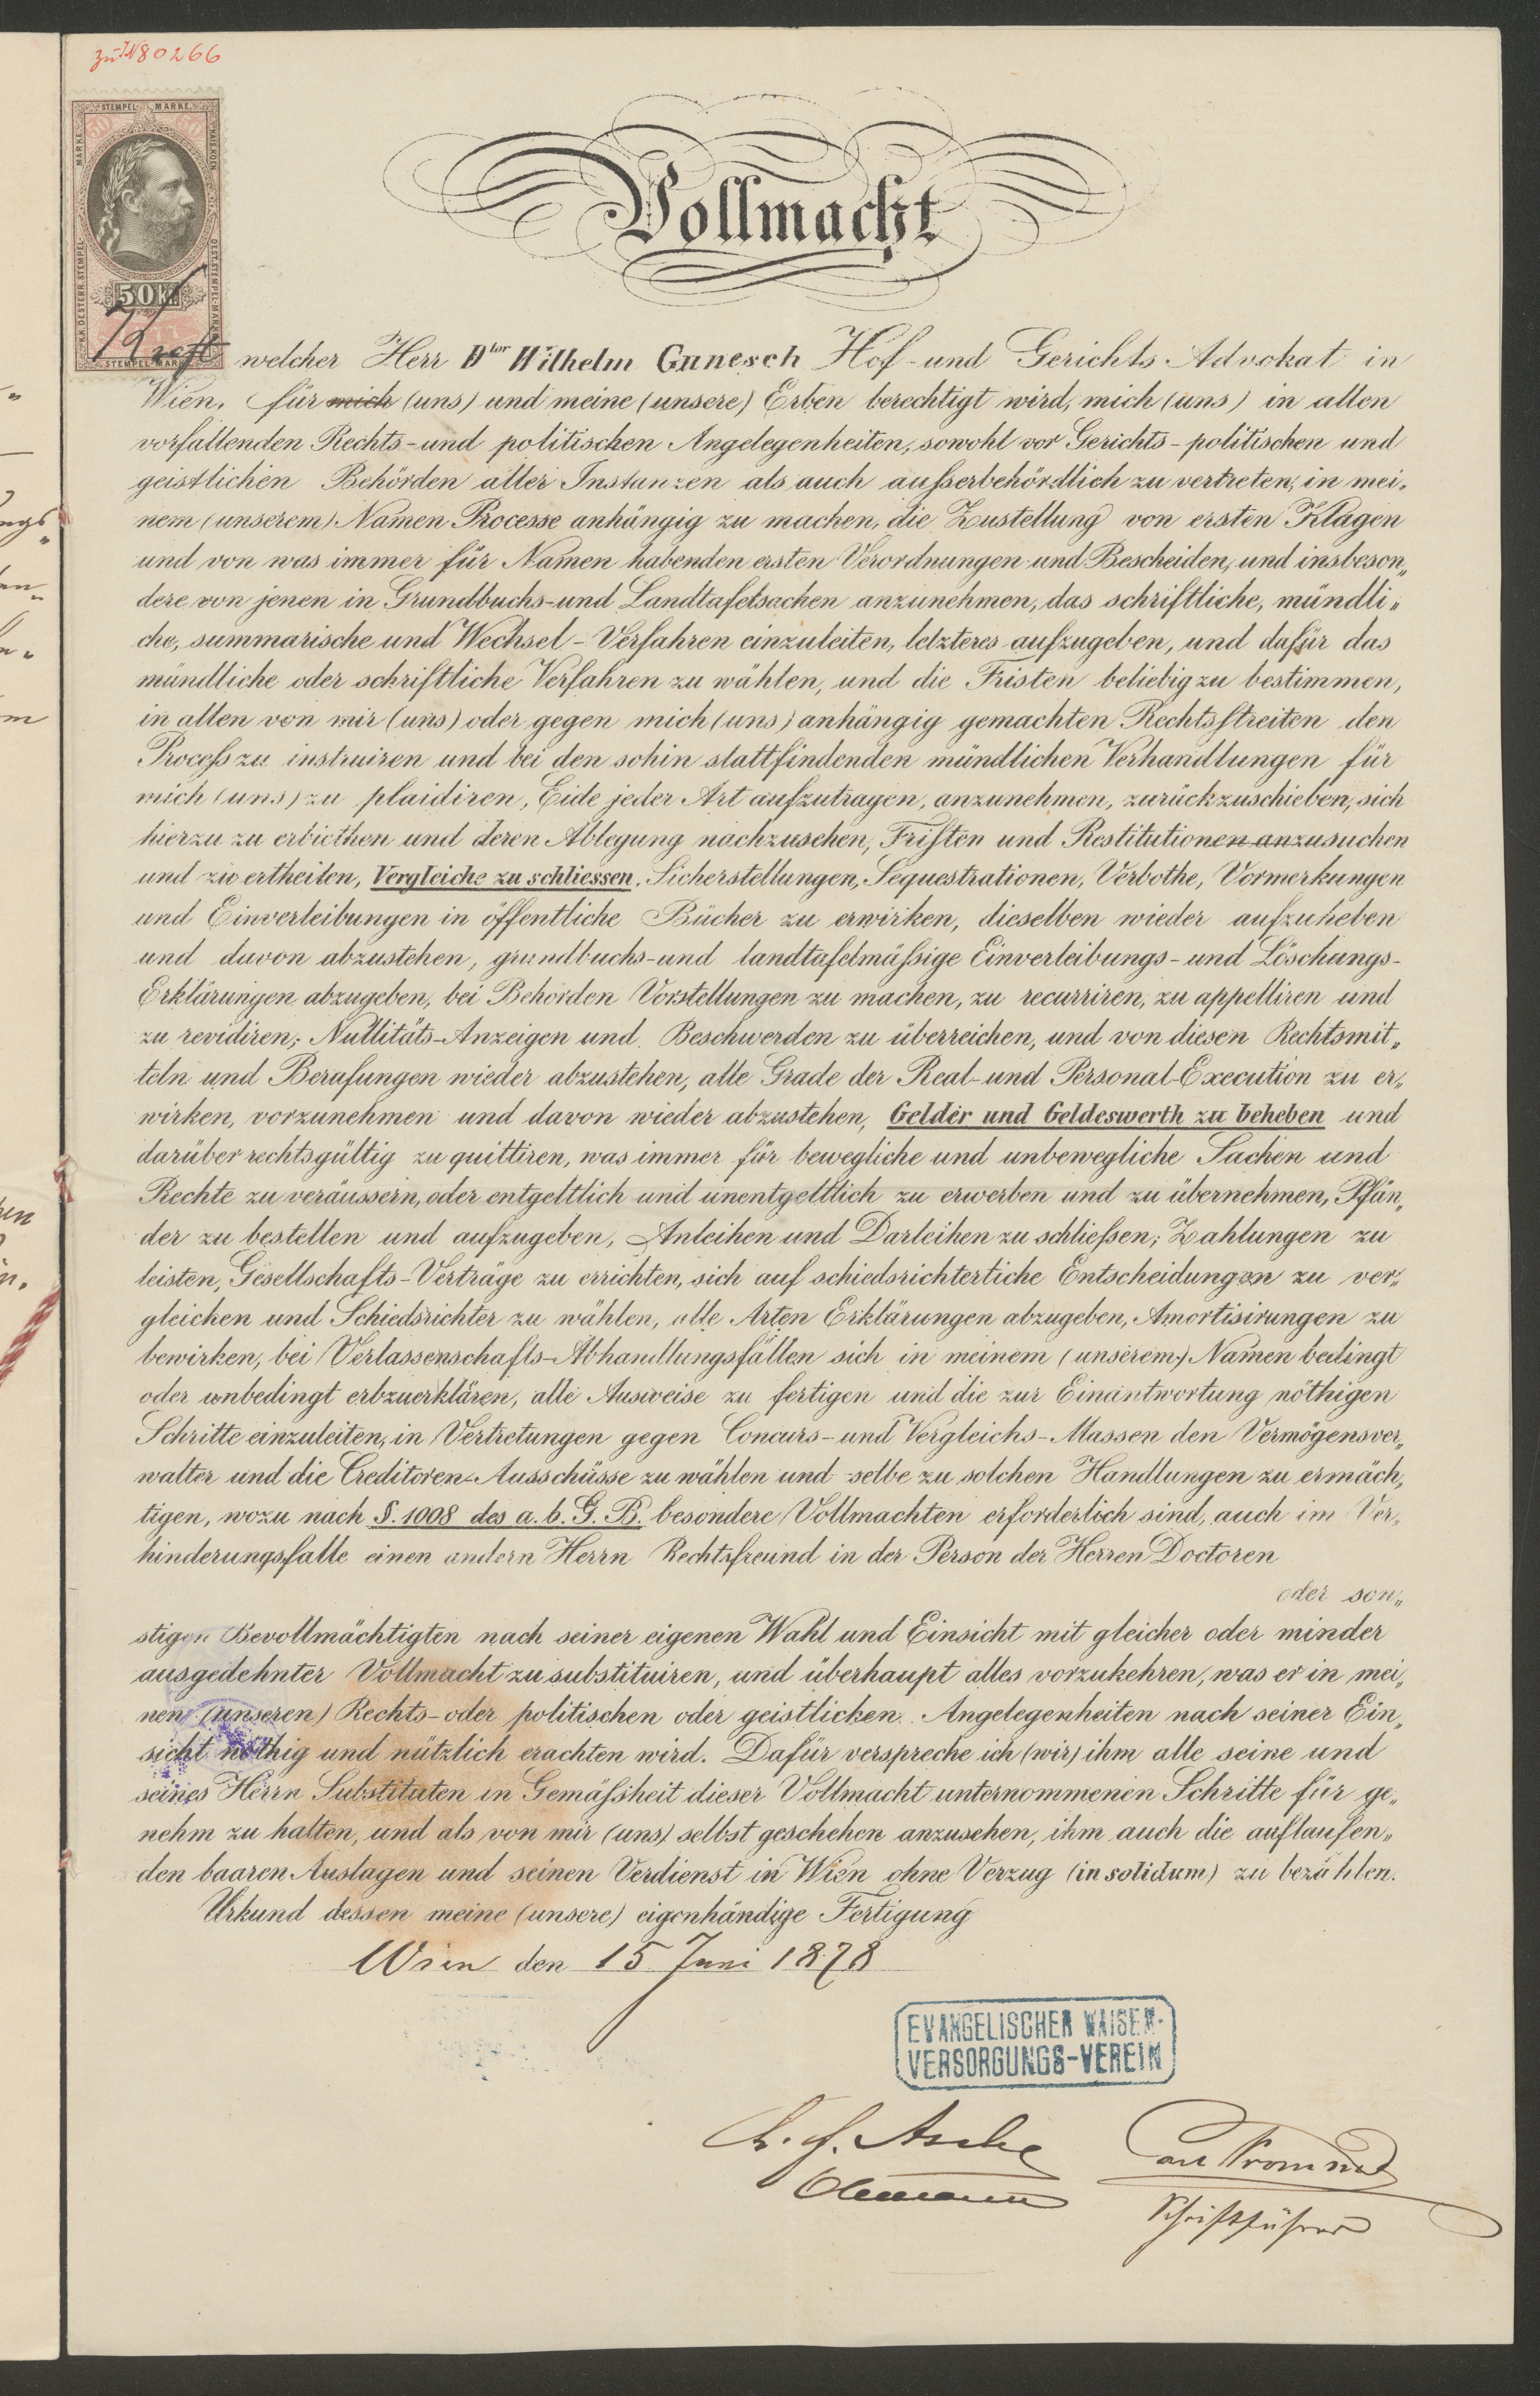 zu IN 80266
STEMPEL MARKE
50 Kr
Vollmacht
welcher Herr Dtor Wilhelm Gunesch Hof- und Gerichts Advokat in
Wien, für mich (uns) und meine (unsere) Erben berechtigt wird, mich (uns) in allen
vorfallenden Rechts- und politischen Angelegenheiten, sowohl vor Gerichts- politischen und
geistlichen Behörden aller Instanzen als auch ausserbehördlich zu vertreten, in mei„
nem (unserem) Namen Processe anhängig zu machen, die Zustellung von ersten Klagen
und von was immer für Namen habenden ersten Verordnungen und Bescheiden, und insbeson„
dere von jenen in Grundbuchs- und Landtafelsachen anzunehmen, das schriftliche, mündli„
che, summarische und Wechsel-Verfahren einzuleiten, letzteres aufzugeben, und dafür das
mündliche oder schriftliche Verfahren zu wählen, und die Fristen beliebig zu bestimmen,
in allen von mir (uns) oder gegen mich (uns) anhängig gemachten Rechtsstreiten den
Process zu instruiren und bei den sohin stattfindenden mündlichen Verhandlungen für
mich (uns) zu plaidiren, Eide jeder Art aufzutragen, anzunehmen, zurückzuschieben, sich
hierzu zu erbiethen und deren Ablegung nachzusehen, Fristen und Restitutionen anzusuchen
und zu ertheilen, Vergleiche zu schliessen, Sicherstellungen, Sequestrationen, Verbothe, Vormerkungen
und Einverleibungen in öffentliche Bücher zu erwirken, dieselben wieder aufzuheben
und davon abzustehen, grundbuchs- und landtafelmässige Einverleibungs- und Löschungs-
Erklärungen abzugeben, bei Behörden Vorstellungen zu machen, zu recurriren, zu appelliren und
zu revidiren, Nullitäts-Anzeigen und Beschwerden zu überreichen, und von diesen Rechtsmit„
teln und Berufungen wieder abzustehen, alle Grade der Real- und Personal-Execution zu er„
wirken, vorzunehmen und davon wieder abzustehen, Gelder und Geldeswerth zu beheben und
darüber rechtsgültig zu quittiren, was immer für bewegliche und unbewegliche Sachen und
Rechte zu veräussern, oder entgeltlich und unentgeltlich zu erwerben und zu übernehmen, Pfän„
der zu bestellen und aufzugeben, Anleihen und Darleihen zu schliessen; Zahlungen zu
leisten, Gesellschafts-Verträge zu errichten, sich auf schiedsrichterliche Entscheidungen zu ver„
gleichen und Schiedsrichter zu wählen, alle Arten Erklärungen abzugeben, Amortisirungen zu
bewirken, bei Verlassenschafts-Abhandlungsfällen sich in meinem (unserem) Namen bedingt
oder unbedingt erbzuerklären, alle Ausweise zu fertigen und die zur Einantwortung nöthigen
Schritte einzuleiten, in Vertretungen gegen Concurs- und Vergleichs-Massen den Vermögensver„
walter und die Creditoren-Ausschüsse zu wählen und selbe zu solchen Handlungen zu ermäch„
tigen, wozu nach §. 1008 des a. b. G. B. besondere Vollmachten erforderlich sind, auch im Ver„
hinderungsfalle einen andern Herrn Rechtsfreund in der Person der Herren Doctoren
oder son„
stigen Bevollmächtigten nach seiner eigenen Wahl und Einsicht mit gleicher oder minder
ausgedehnter Vollmacht zu substituiren, und überhaupt alles vorzukehren, was er in mei„
nen (unseren) Rechts- oder politischen oder geistlichen Angelegenheiten nach seiner Ein„
sicht nöthig und nützlich erachten wird. Dafür verspreche ich (wir) ihm alle seine und
seines Herrn Substituten in Gemässheit dieser Vollmacht unternommenen Schritte für ge„
nehm zu halten, und als von mir (uns) selbst geschehen anzusehen, ihm auch die auflaufen„
den baaren Auslagen und seinen Verdienst in Wien ohne Verzug (in solidum) zu bezahlen.
Urkund dessen meine (unsere) eigenhändige Fertigung
Wien den 15 Juni 1878
EVANGELISCHER WAISEN-
VERSORGUNGS-VEREIN
Asche
Obmann
Schriftführer